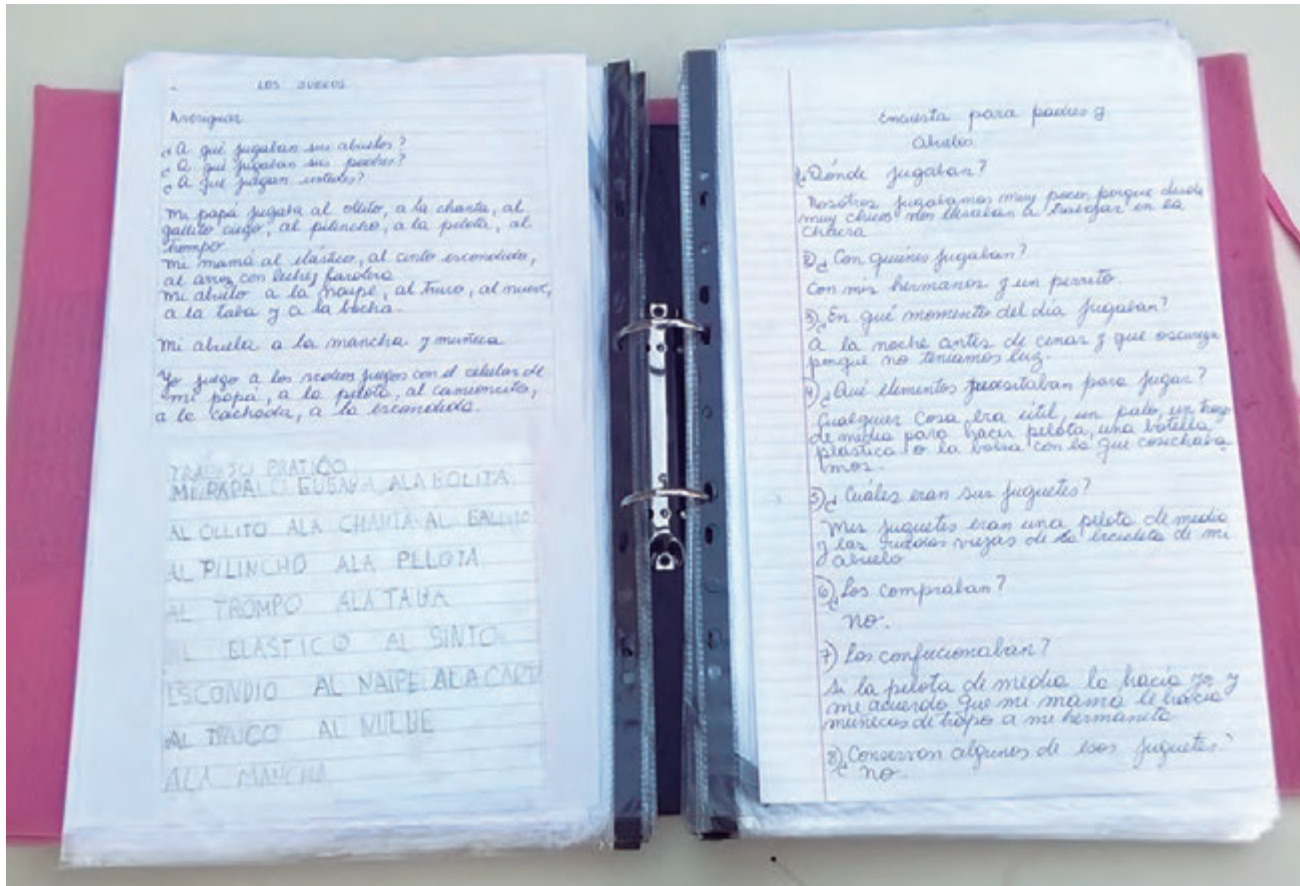 LOS JUEGOS
Averiguar
¿A qué jugaban sus abuelos?
¿A qué jugaban sus padres?
¿A que juegan ustedes?
Mi papá jugaba al ollito, a la chanta, al
gallito ciego, al pilincho, a la pelota, al
trompo
mi mamá al elástico, al cinto escondido,
al arroz con leche, farolera
mi abuelo a la naipe, al truco, al nueve,
a la taba y a la bocha.
Mi abuela a la mancha y muñeca
Yo juego a los videos juegos con el celular de
mi papá, a la pelota, al camioncito,
a la cachada, a la escondida.
TRABAJO PRATICO
MI PAPA LO GUBABA ALA BOLITA
AL OLLITO ALA CHANTA AL GALLITO
AL PILINCHO ALA PELOTA
AL TROMPO ALA TABA
AL ELASTICO AL SINTO
ESCONDIO AL NAIPE ALA CART
AL TRUCO AL NUEUE
ALA MANCHA
Encuesta para padres y
Abuelos
1¿Dónde jugaban?
Nosotros jugabamos muy poco, porque desde
muy chicos nos llevaban a trabajar en la
chacra
2)¿Con quienes jugaban?
Con mis hermanos y un perrito.
3)¿En qué momento del día jugaban?
A la noche antes de cenar y que oscurezca
porque no teniamos luz.
4)¿Qué elementos necesitaban para jugar?
Cualquier cosa era útil, un palo, un trozo
de media para hacer pelota, una botella
plástica o la bolsa con la que cosechaba
mos.
5)¿Cuáles eran sus juguetes?
Mis juguetes eran una pelota de media
y las ruedas viejas de la bicicleta de mi
abuelo
6)¿Los compraban?
no.
7) Los confucionaban?
Si la pelota de media la hacía yo y
me acuerdo que mi mamá le hacía
muñecas de trapo a mi hermanita
8)¿Conservan algunos de esos juguetes?
no.